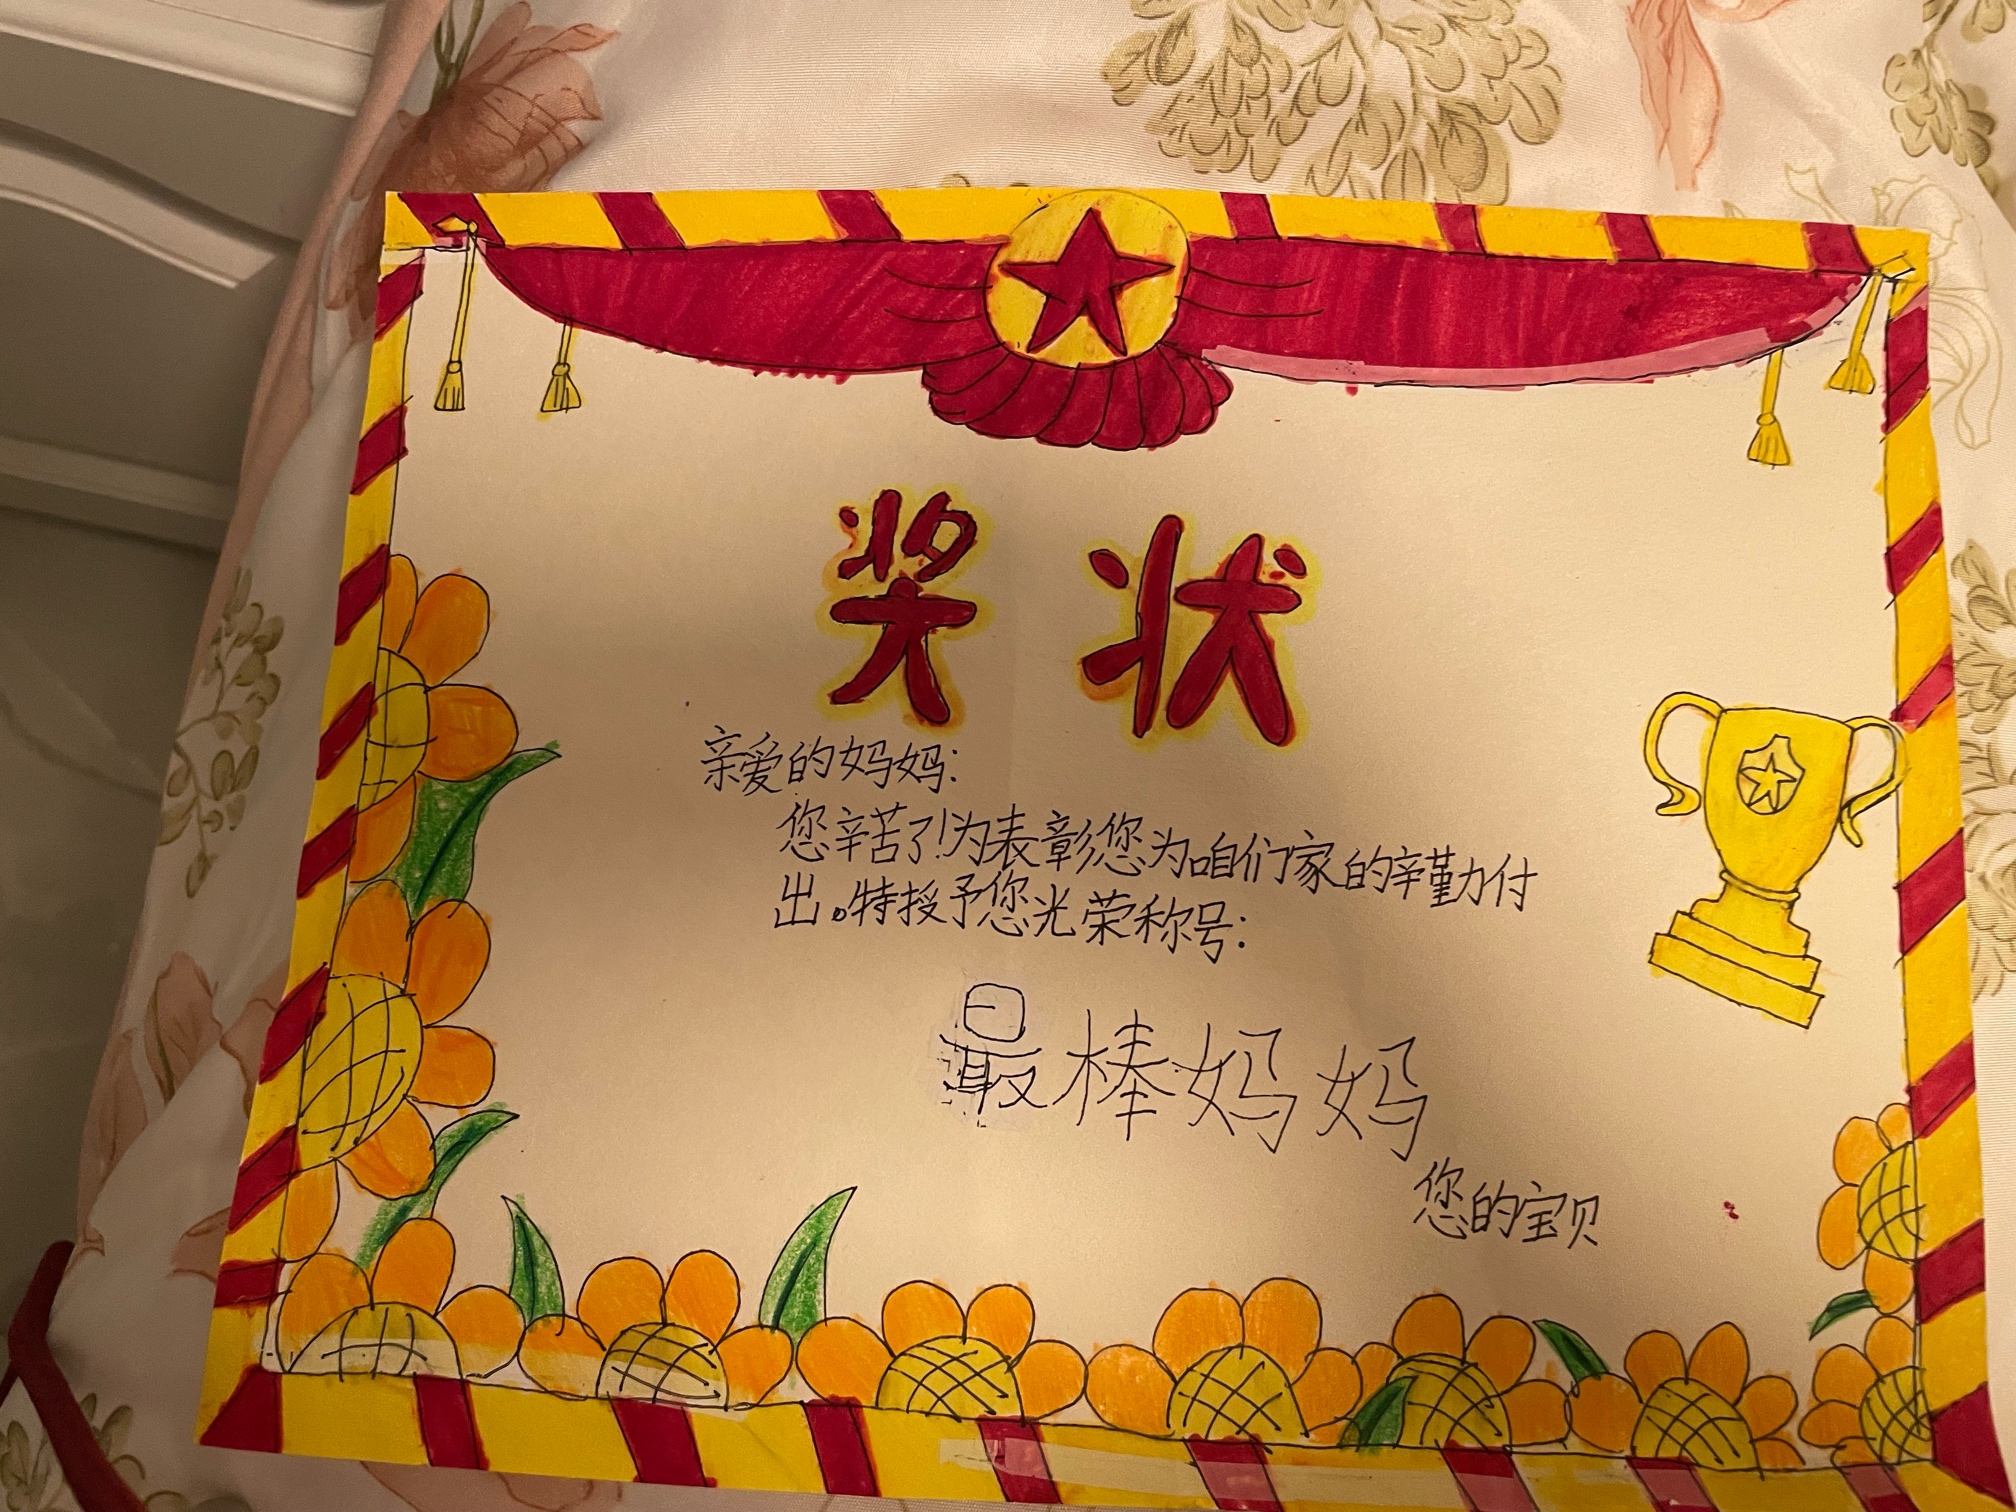 奖状
亲爱的妈妈:
您辛苦了!为表彰您为咱们家的辛勤付
出。特授予您光荣称号:
最棒妈妈
您的宝贝